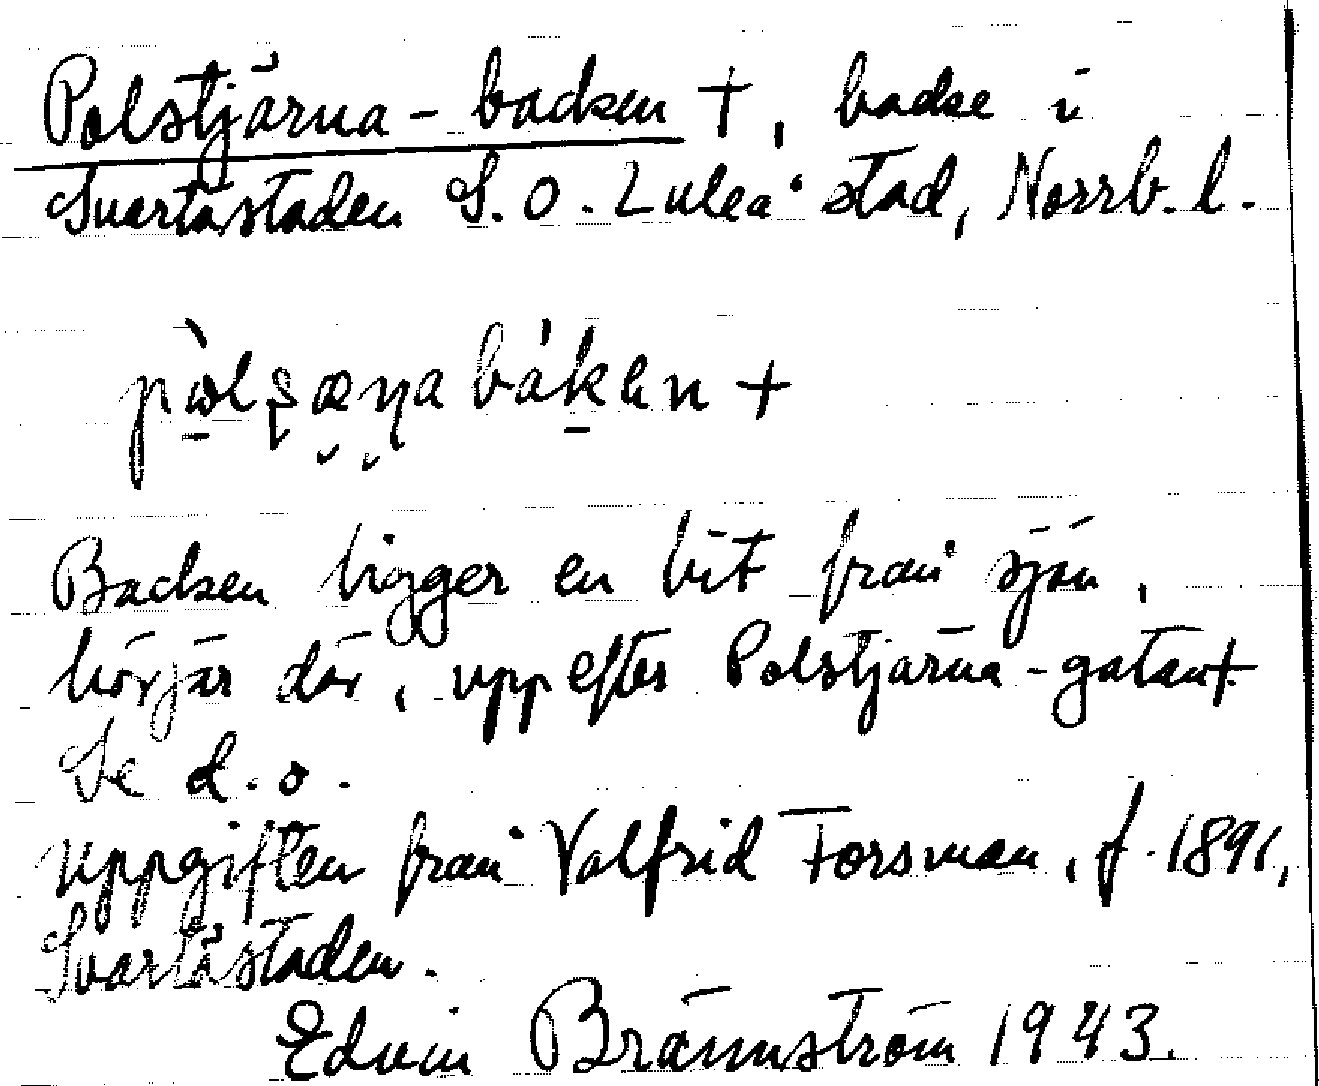 Polstjärna-backen +, backe i
Svartöstaden S.O. Luleå stad, Norrb. l.
Backen ligger en bit från sjön,
börjar där, uppefter Polstjärna-gatan +.
Se d. o.
Uppgiften från Valfrid Forsman, f. 1891,
Svartöstaden.
Edvin Brännström 1943.